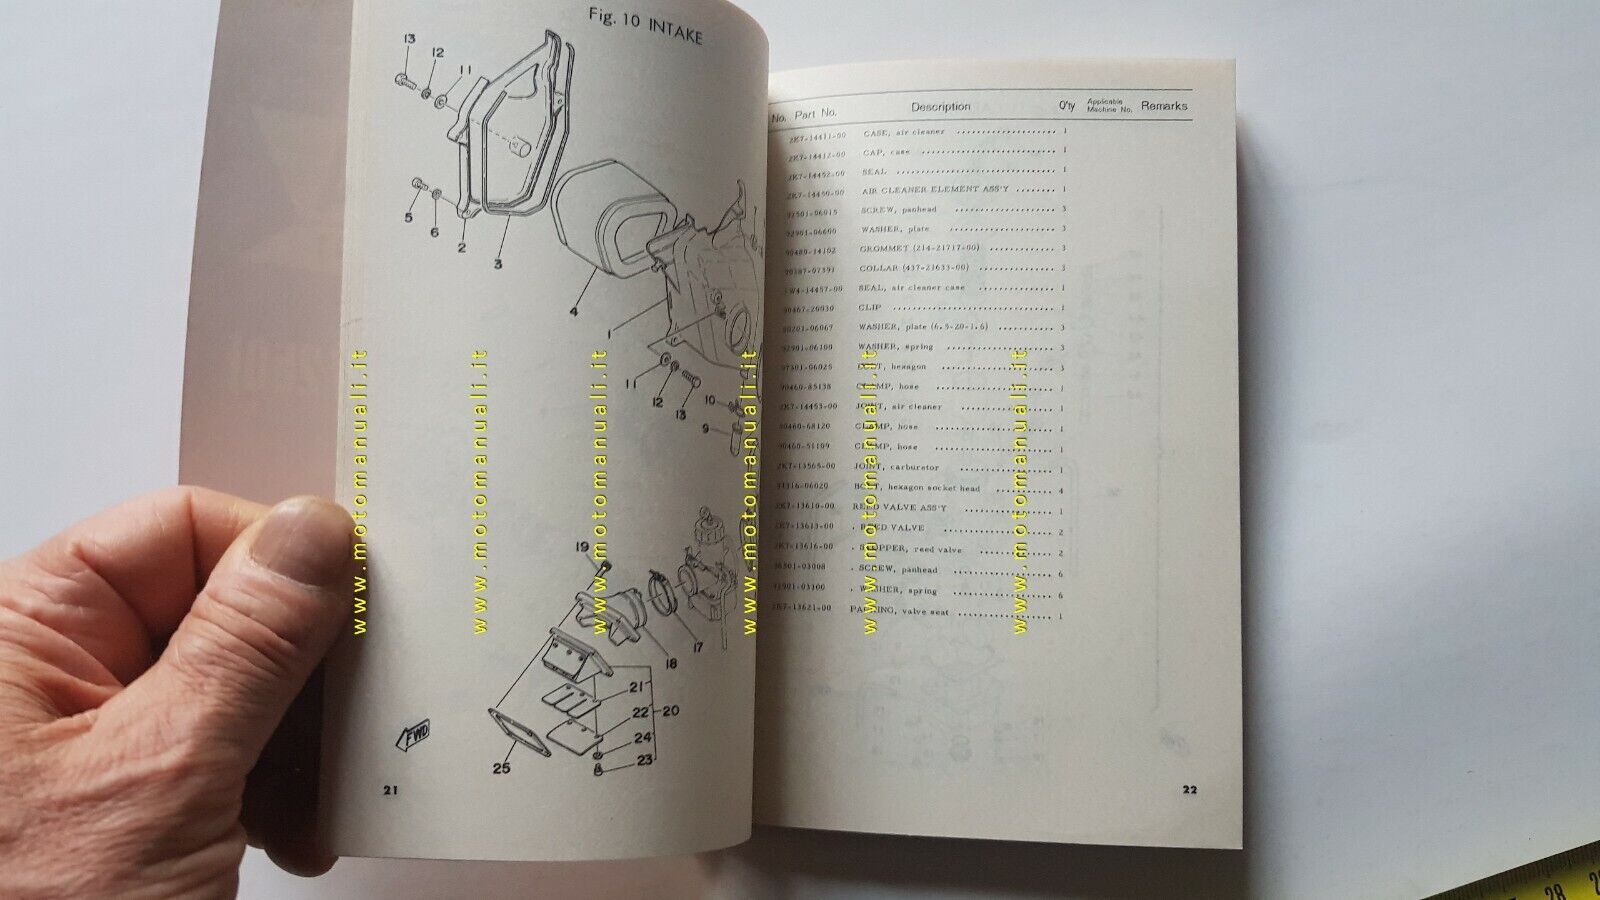 Fig. 10 INTAKE
13
12
11
5
6
2
3
4
1
11
12
13
10
9
19
17
18
21
22
20
24
23
25
FWD
21
No. Part No. Description Q'ty Applicable Machine No. Remarks
2K7-14411-00 CASE, air cleaner 1
2K7-14412-00 CAP, case 1
2K7-14452-00 SEAL 1
2K7-14450-00 AIR CLEANER ELEMENT ASS'Y 1
92501-06015 SCREW, panhead 3
92901-06600 WASHER, plate 3
90480-14102 GROMMET (214-21717-00) 3
90387-07391 COLLAR (437-21633-00) 3
1W4-14457-00 SEAL, air cleaner case 1
90467-20030 CLIP 1
90201-06067 WASHER, plate (6.5-20-1.6) 3
92901-06100 WASHER, spring 3
97301-06025 BOLT, hexagon 3
90460-85138 CLAMP, hose 1
2K7-14453-00 JOINT, air cleaner 1
90460-68120 CLAMP, hose 1
90460-51109 CLAMP, hose 1
2K7-13565-00 JOINT, carburetor 1
91316-06020 BOLT, hexagon socket head 4
2K7-13610-00 REED VALVE ASS'Y 1
2K7-13613-00 . REED VALVE 2
2K7-13616-00 . STOPPER, reed valve 2
98501-03008 . SCREW, panhead 6
92901-03100 . WASHER, spring 6
2K7-13621-00 PACKING, valve seat 1
22
www.motomanuali.it
www.motomanuali.it
www.motomanuali.it
www.motomanuali.it
www.motomanuali.it
www.motomanuali.it
28